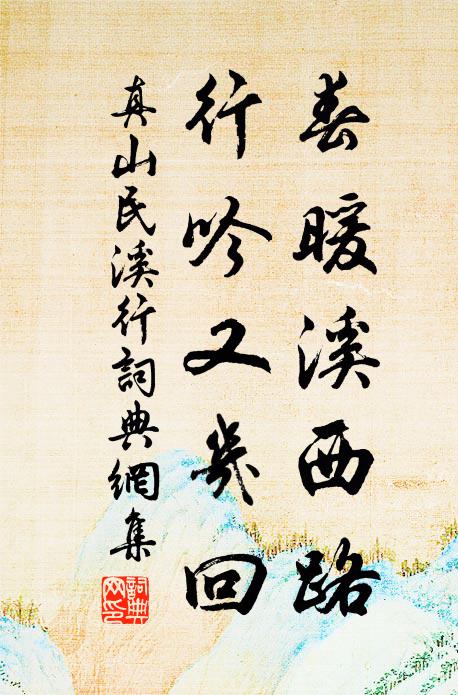 春暖溪西路
行吟又幾回
真山民溪行詞典網集
詞典網印